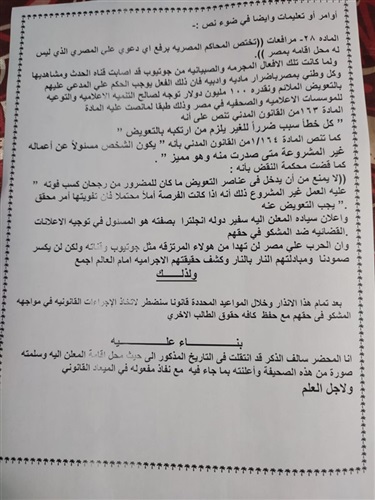 أوامر أو تعليمات وايضا في ضوء نص :-
الماده ٢٨- مرافعات ((تختص المحاكم المصريه برفع اي دعوي علي المصري الذي ليس
له محل اقامه بمصر )).
ولما كانت تلك الافعال المجرمه والصبيانيه من جوتيوب قد اصابت قناه الحدث ومشاهديها
وكل وطني بمصر باضرار ماديه وادبيه فان ذلك الفعل يوجب الحكم علي المدعي عليهم
بالتعويض الملائم ونقدره ١٠٠ مليون دولار توجه لصالح التنمية الاعلاميه والتوعيه
للموسسات الاعلاميه والصحفيه في مصر وذلك طبقا لمانصت عليه المادة
١٦٣من القانون المدني تنص على أنه
" كل خطأ سبب ضرراً للغير يلزم من ارتكبه بالتعويض "
كما تنص المادة ١/١٦٤من القانون المدني بأنه " يكون الشخص مسئولاً عن أعماله
غير المشروعة متى صدرت منه وهو مميز " .
كما قضت محكمة النقض بأنه :
((لا يمنع من أن يدخل في عناصر التعويض ما كان للمضرور من رجحان كسب فوته "
عليه العمل غير المشروع ذلك أنه اذا كانت الفرصة أملاً محتملاً فان تفويتها أمر محقق
. " يجب التعويض عنه
وأعلان سياده المعلن اليه سفير دوله انجلترا بصفته هو المسئول في توجيه الاعلانات
القضائيه ضد المشكو في حقهم
وان الحرب علي مصر لن تهدا من هولاء المرتزقه مثل جوتيوب وقناته ولكن لن يكسر
صمودنا ومبادلتهم النار بالنار وكشف حقيقتهم الاجراميه امام العالم اجمع
ولذلــــــك
بعد تمام هذا الانذار وخلال المواعيد المحددة قانونا سنضطر لاتخاذ الإجراءات القانونيه في مواجهه
المشكو في حقهم مع حفظ كافه حقوق الطالب الاخري
بنـــــاء عليـــــه
انا المحضر سالف الذكر قد انتقلت في التاريخ المذكور الى حيث محل اقامة المعلن اليه وسلمته
صورة من هذه الصحيفة وأعلنته بما جاء فيه مع نفاذ مفعوله في الميعاد القانوني
ولاجل العلم